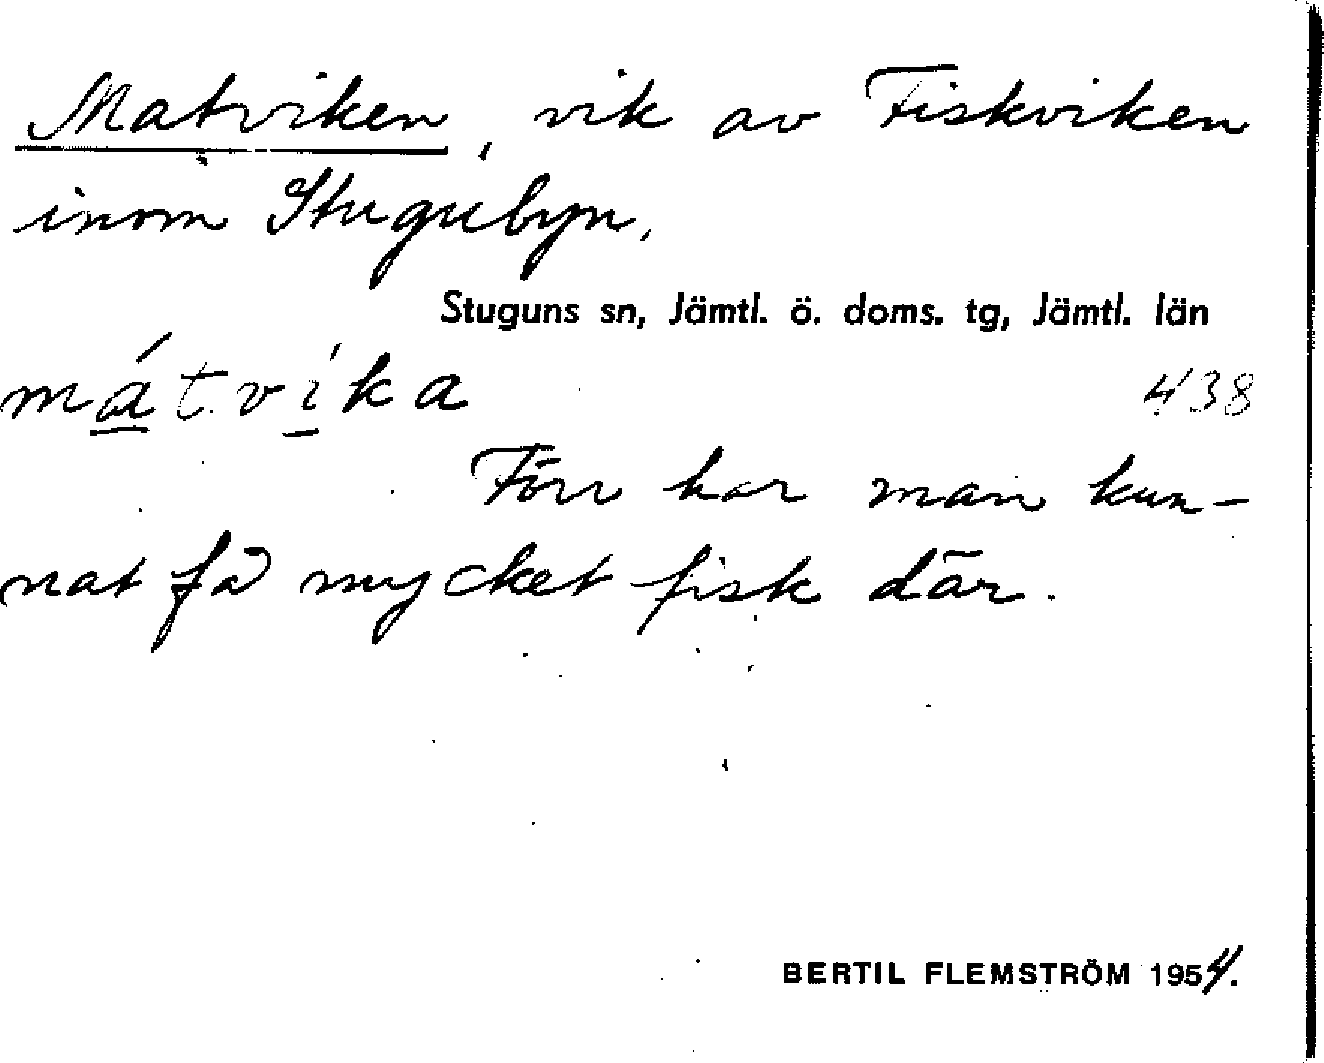 Matviken, vik av Fiskviken
inom Stugubyn.
Stuguns sn, Jämtl. ö. doms. tg, Jämtl. län
mátvíka 438
Förr har man kun-
nat få mycket fisk där.
BERTIL FLEMSTRÖM 1954.